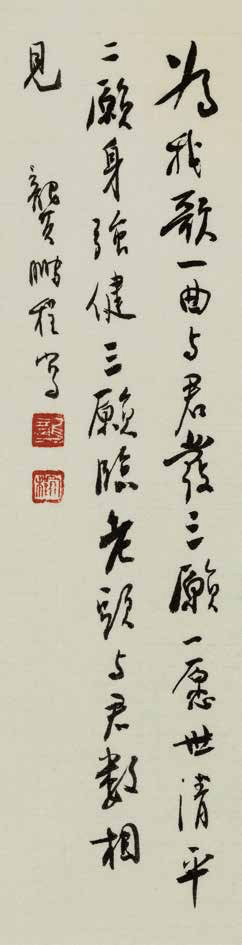 为我歌一曲与君發三願一愿世清平
二願身強健三願臨老頭与君數相
見
龔鵬程寫